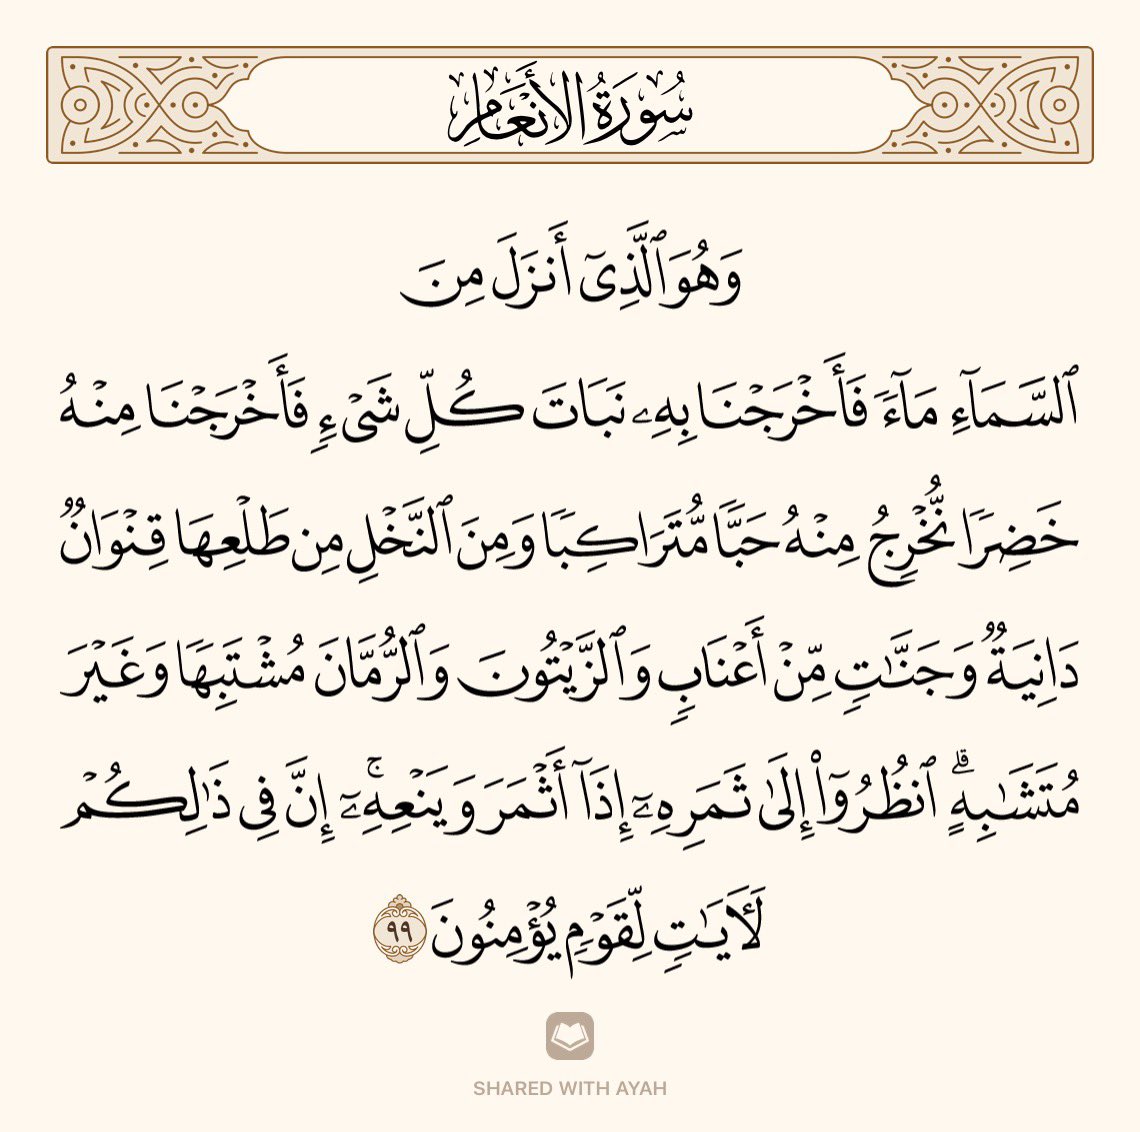 سُورَةُ الأَنْعَامِ
وَهُوَ ٱلَّذِىٓ أَنزَلَ مِنَ
ٱلسَّمَآءِ مَآءً فَأَخْرَجْنَا بِهِۦ نَبَاتَ كُلِّ شَىْءٍ فَأَخْرَجْنَا مِنْهُ
خَضِرًا نُّخْرِجُ مِنْهُ حَبًّا مُّتَرَاكِبًا وَمِنَ ٱلنَّخْلِ مِن طَلْعِهَا قِنْوَانٌ
دَانِيَةٌ وَجَنَّـٰتٍ مِّنْ أَعْنَابٍ وَٱلزَّيْتُونَ وَٱلرُّمَّانَ مُشْتَبِهًا وَغَيْرَ
مُتَشَـٰبِهٍ ۗ ٱنظُرُوٓا۟ إِلَىٰ ثَمَرِهِۦٓ إِذَآ أَثْمَرَ وَيَنْعِهِۦٓ ۚ إِنَّ فِى ذَٰلِكُمْ
لَـَٔايَـٰتٍ لِّقَوْمٍ يُؤْمِنُونَ ٩٩
SHARED WITH AYAH